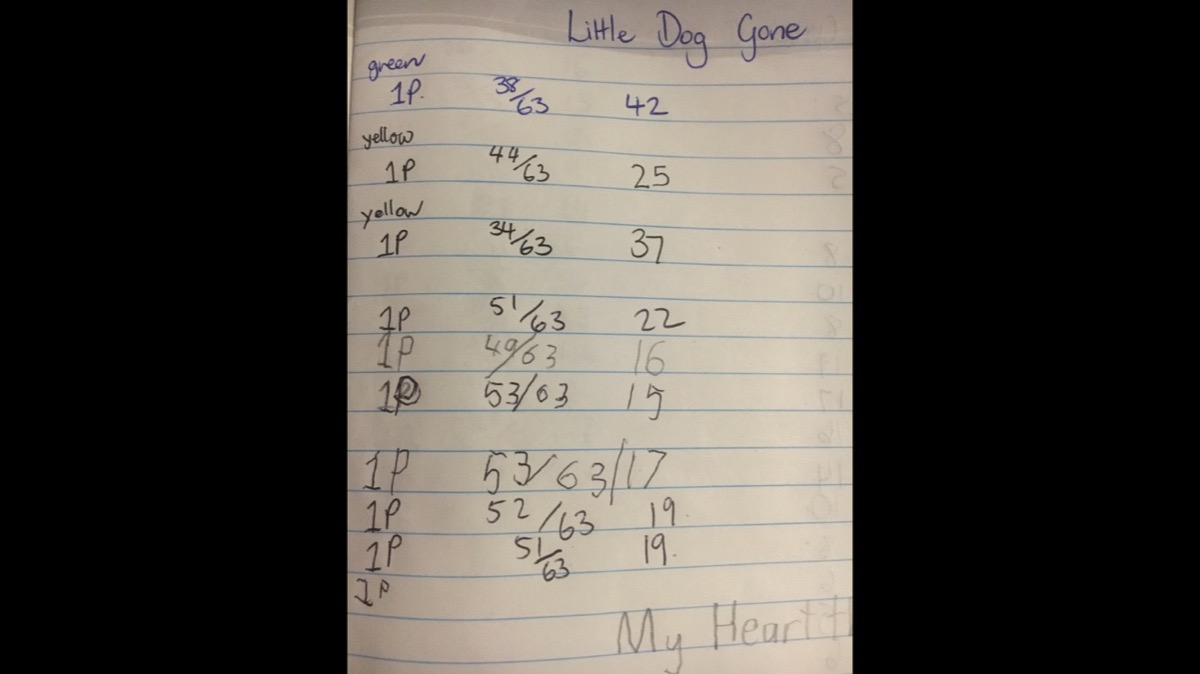 Little Dog Gone
green
1P. 38/63 42
yellow
1P 44/63 25
yellow
1P 34/63 37
1P 51/63 22
1P 49/63 16
1P 53/63 15
1P 53/63/17
1P 52/63 19.
1P 51/63 19.
1P
My Heart